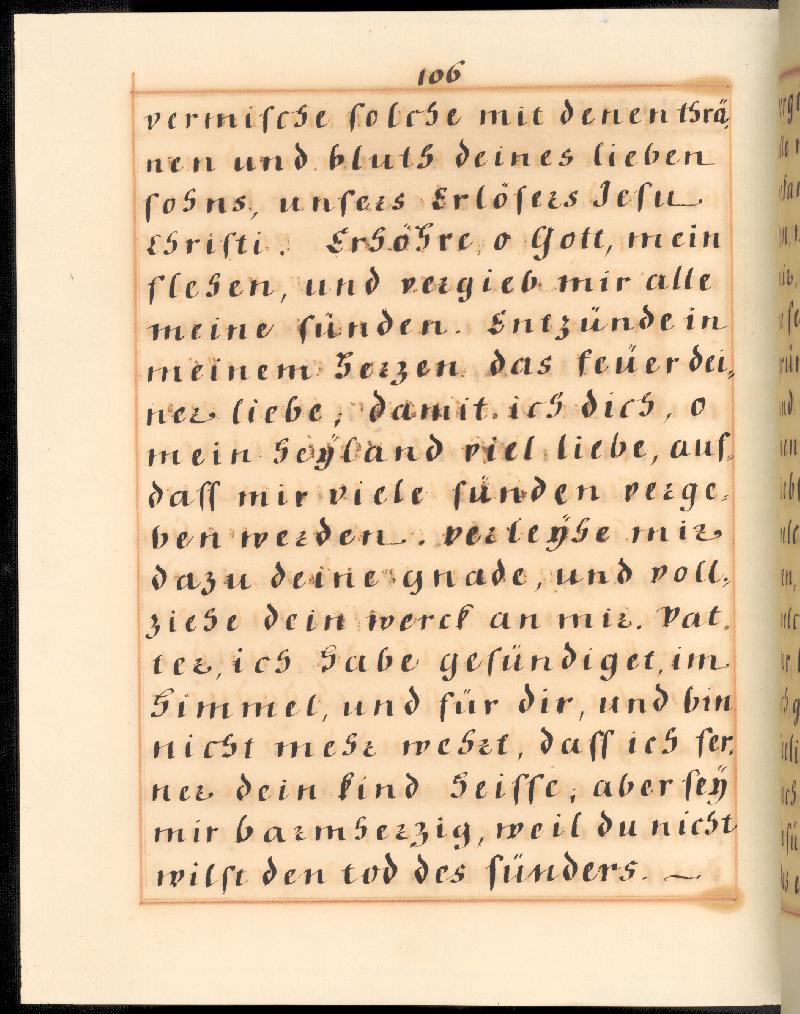 106
vermische solche mit denen thrä-
nen und bluth deines lieben
sohns, unsers Erlösers Jesu
Christi. Erhöhre, o Gott, mein
flehen, und vergieb mir alle
meine sünden. Entzünde in
meinem herzen das feüer dei-
ner liebe, damit ich dich, o
mein heÿland viel liebe, auf
dass mir viele sünden verge-
ben werden. verleÿhe mir
dazu deine gnade, und voll-
ziehe dein werck an mir. Vat-
ter, ich habe gesündiget, im
himmel, und für dir, und bin
nicht mehr wehrt, dass ich fer-
ner dein kind heisse, aber seÿ
mir barmherzig, weil du nicht
wilst den tod des sünders. —